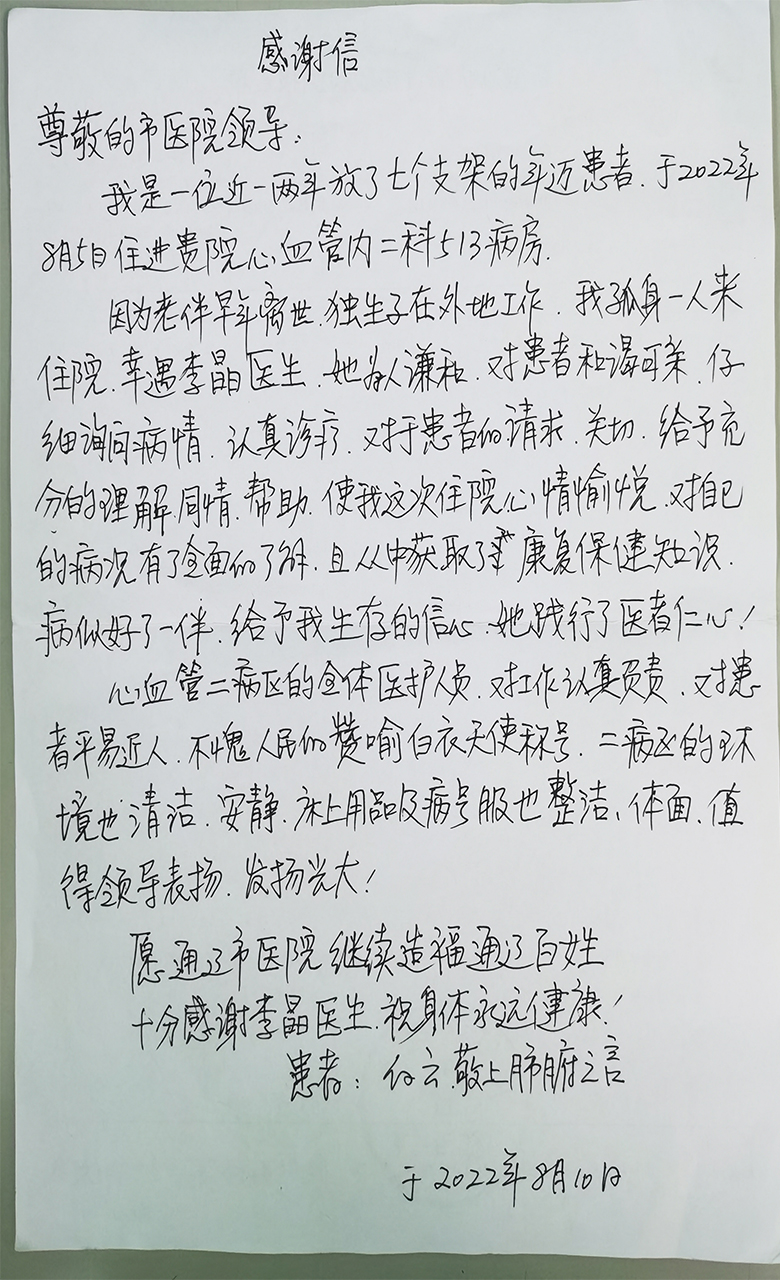 感谢信
尊敬的市医院领导:
我是一位近一两年放了七个支架的年迈患者.于2022年
8月5日住进贵院心血管内二科513病房.
因为老伴早年离世.独生子在外地工作.我孤身一人来
住院.幸遇李晶医生.她为人谦和.对患者和蔼可亲.仔
细询问病情.认真诊疗.对于患者的请求.关切.给予充
分的理解.同情.帮助.使我这次住院心情愉悦.对自己
的病况有了全面的了解.且从中获取了康复保健知识.
病似好了一伴.给予我生存的信心.她践行了医者仁心!
心血管二病区的全体医护人员.对工作认真负责.对患
者平易近人.不愧人民的赞喻白衣天使称号.二病区的环
境也清洁.安静.床上用品及病号服也整洁、体面.值
得领导表扬.发扬光大!
愿通辽市医院继续造福通辽百姓
十分感谢李晶医生.祝身体永远健康!
患者:白云.敬上肺腑之言
于2022年8月10日